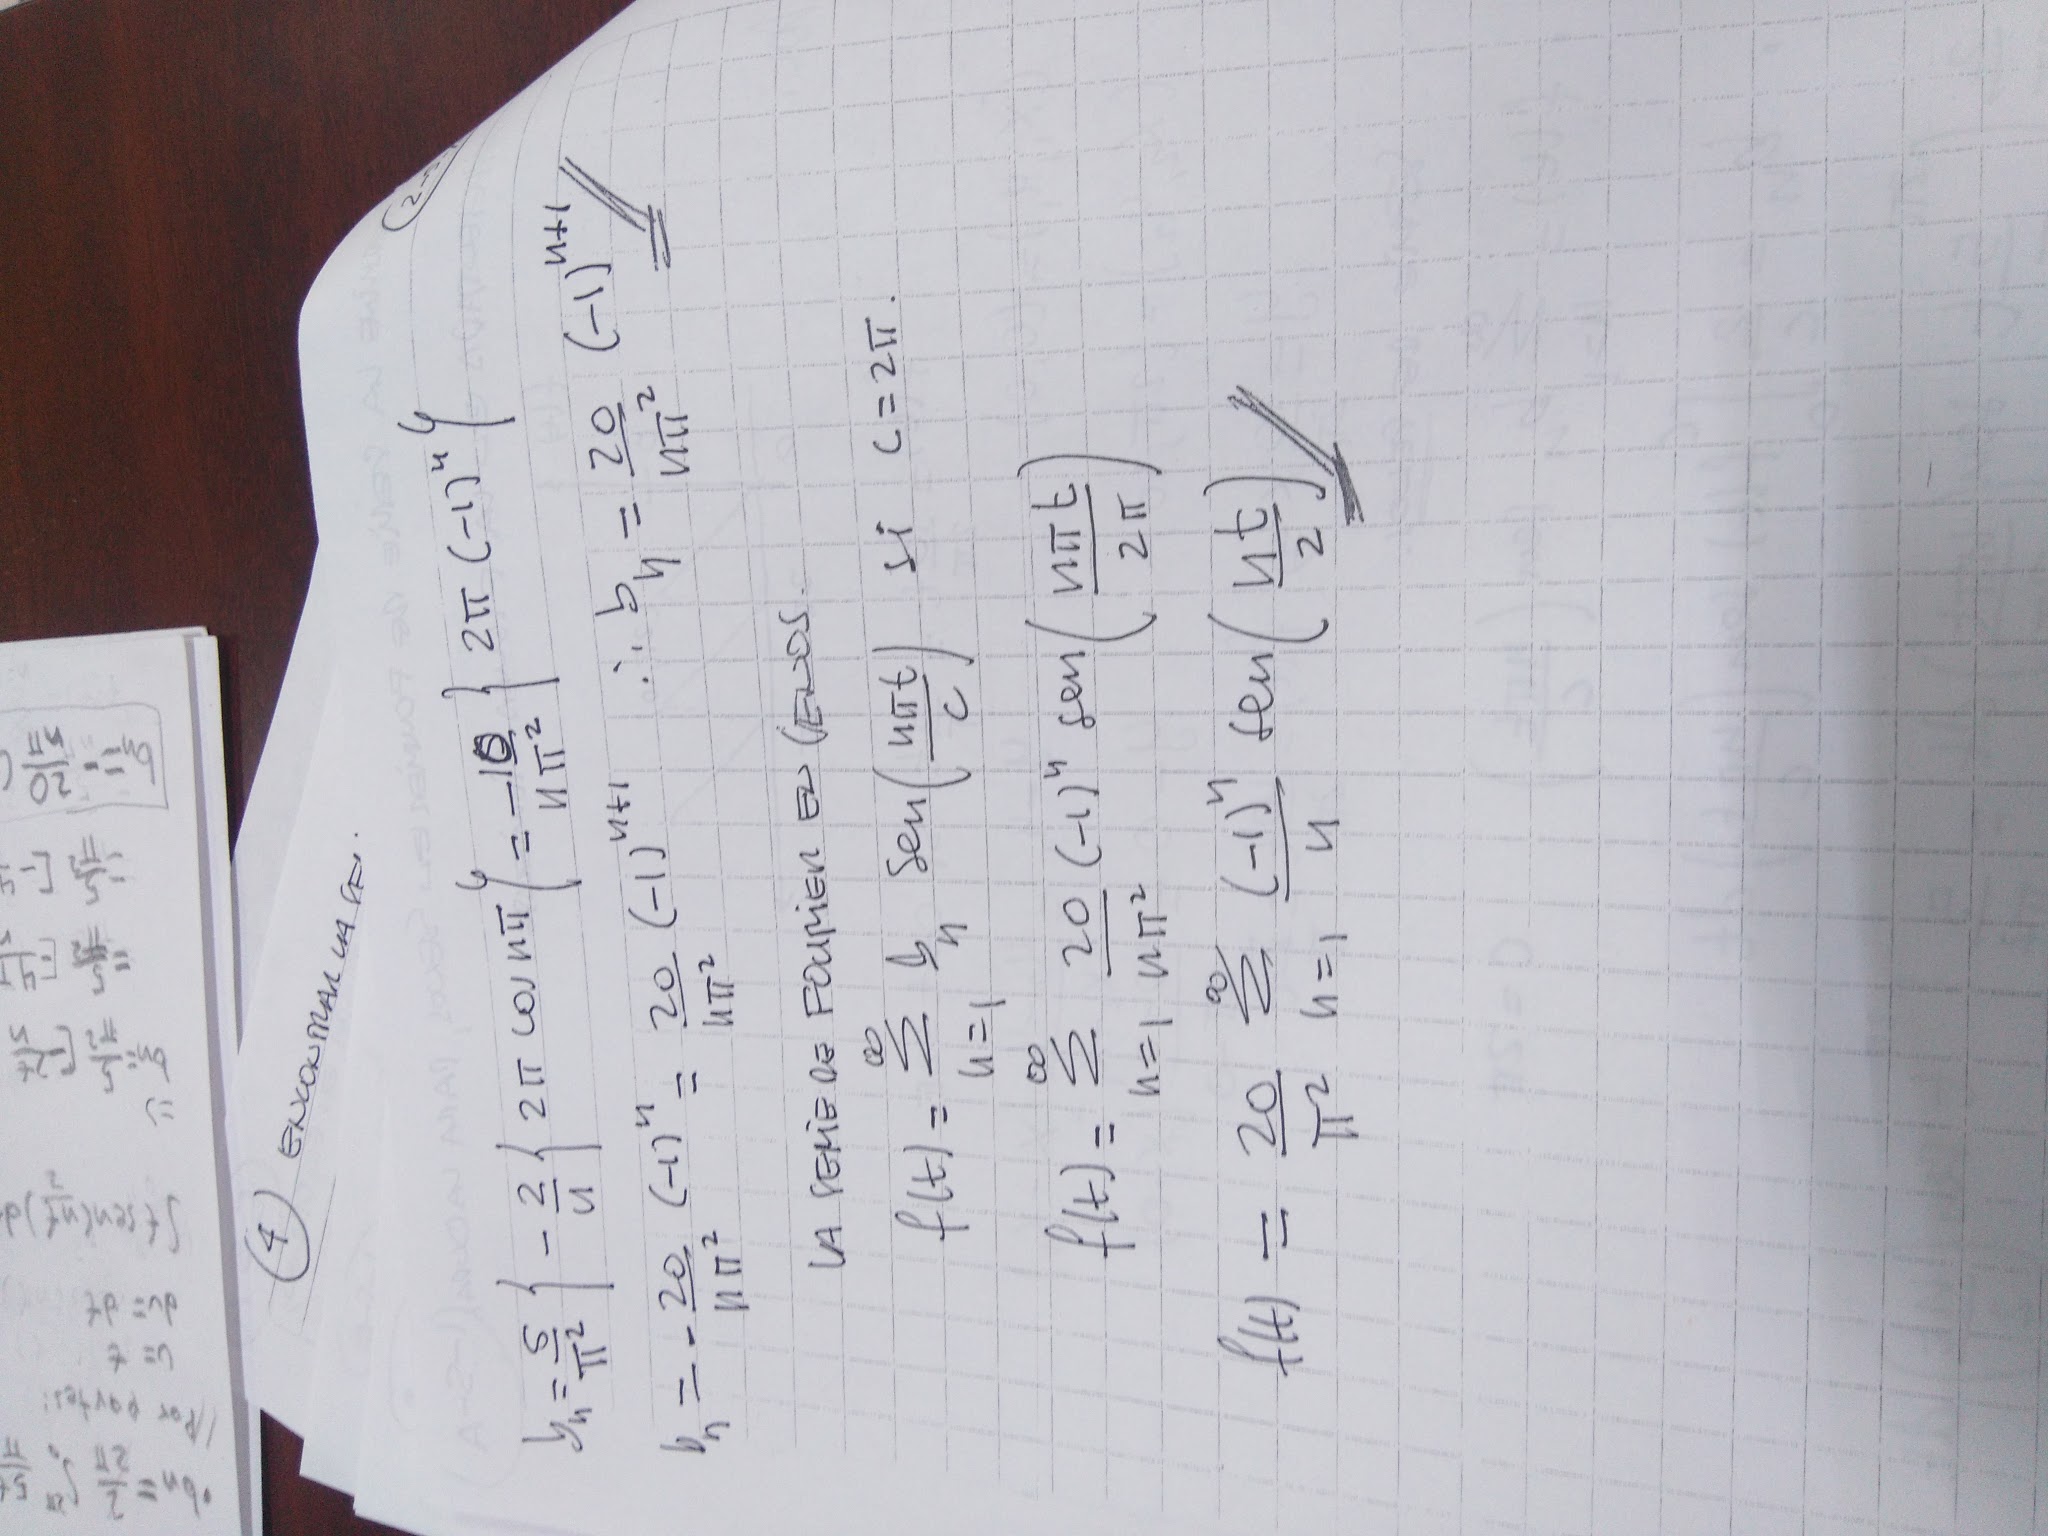 bn = 2/2π ∫₀^2π 5t/π
//Por partes:
u = t
du = dt
∫ t sen(nt/2) d
=>
bn = 5/π² [-2t/n
= 5/π² [-4π/n
= 5/π² [-4
bn = - 20/nπ (
④ ENCONTRAR LA SE
bn = 5/π² { - 2/n { 2π cos nπ } = -10/nπ² { 2π (-1)^n }
bn = - 20/nπ² (-1)^n = 20/nπ² (-1)^n+1 ∴ bn = 20/nπ² (-1)^n+1
LA SERIE DE FOURIER EN SENOS.
f(t) = ∞ Σ n=1 bn Sen(nπt/c) si c = 2π.
f(t) = ∞ Σ n=1 20/nπ² (-1)^n sen(nπt/2π)
f(t) = 20/π² ∞ Σ n=1 (-1)^n/n sen(nt/2)